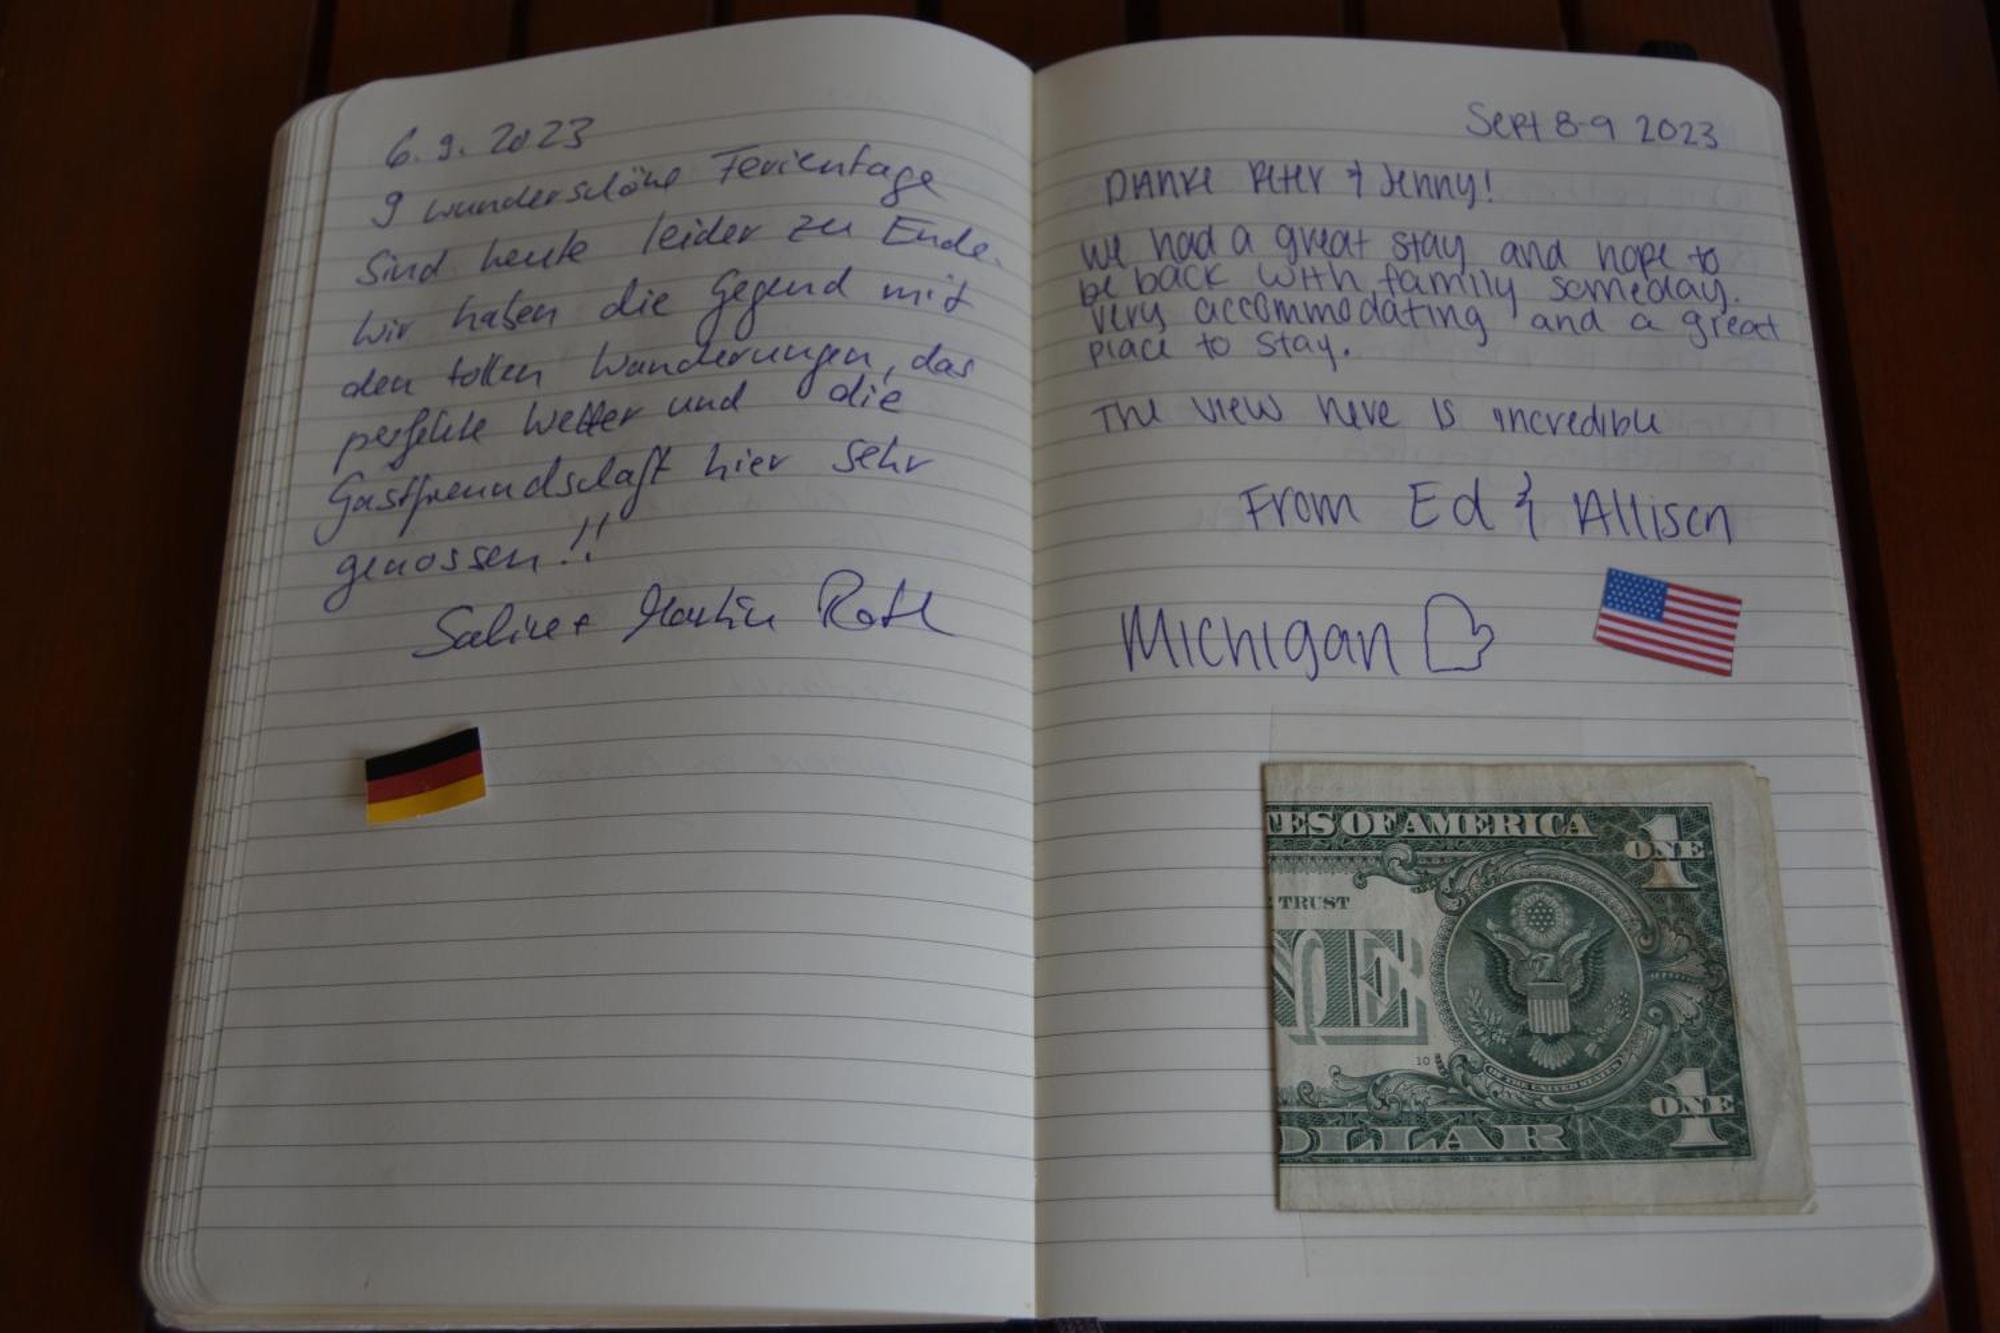 6.9.2023
9 wunderschöne Ferientage
sind heute leider zu Ende.
Wir haben die Gegend mit
den tollen Wanderungen, das
perfekte Wetter und die
Gastfreundschaft hier sehr
genossen!!
Sabine + Martin Roth
Sept 8-9 2023
DANKE PETER & Jenny!
we had a great stay and hope to
be back with family someday.
very accommodating and a great
place to stay.
The view here is incredible
From Ed & Allison
Michigan
TES OF AMERICA
1
ONE
TRUST
NE
10
OF THE UNITED STATES
1
ONE
OLLAR